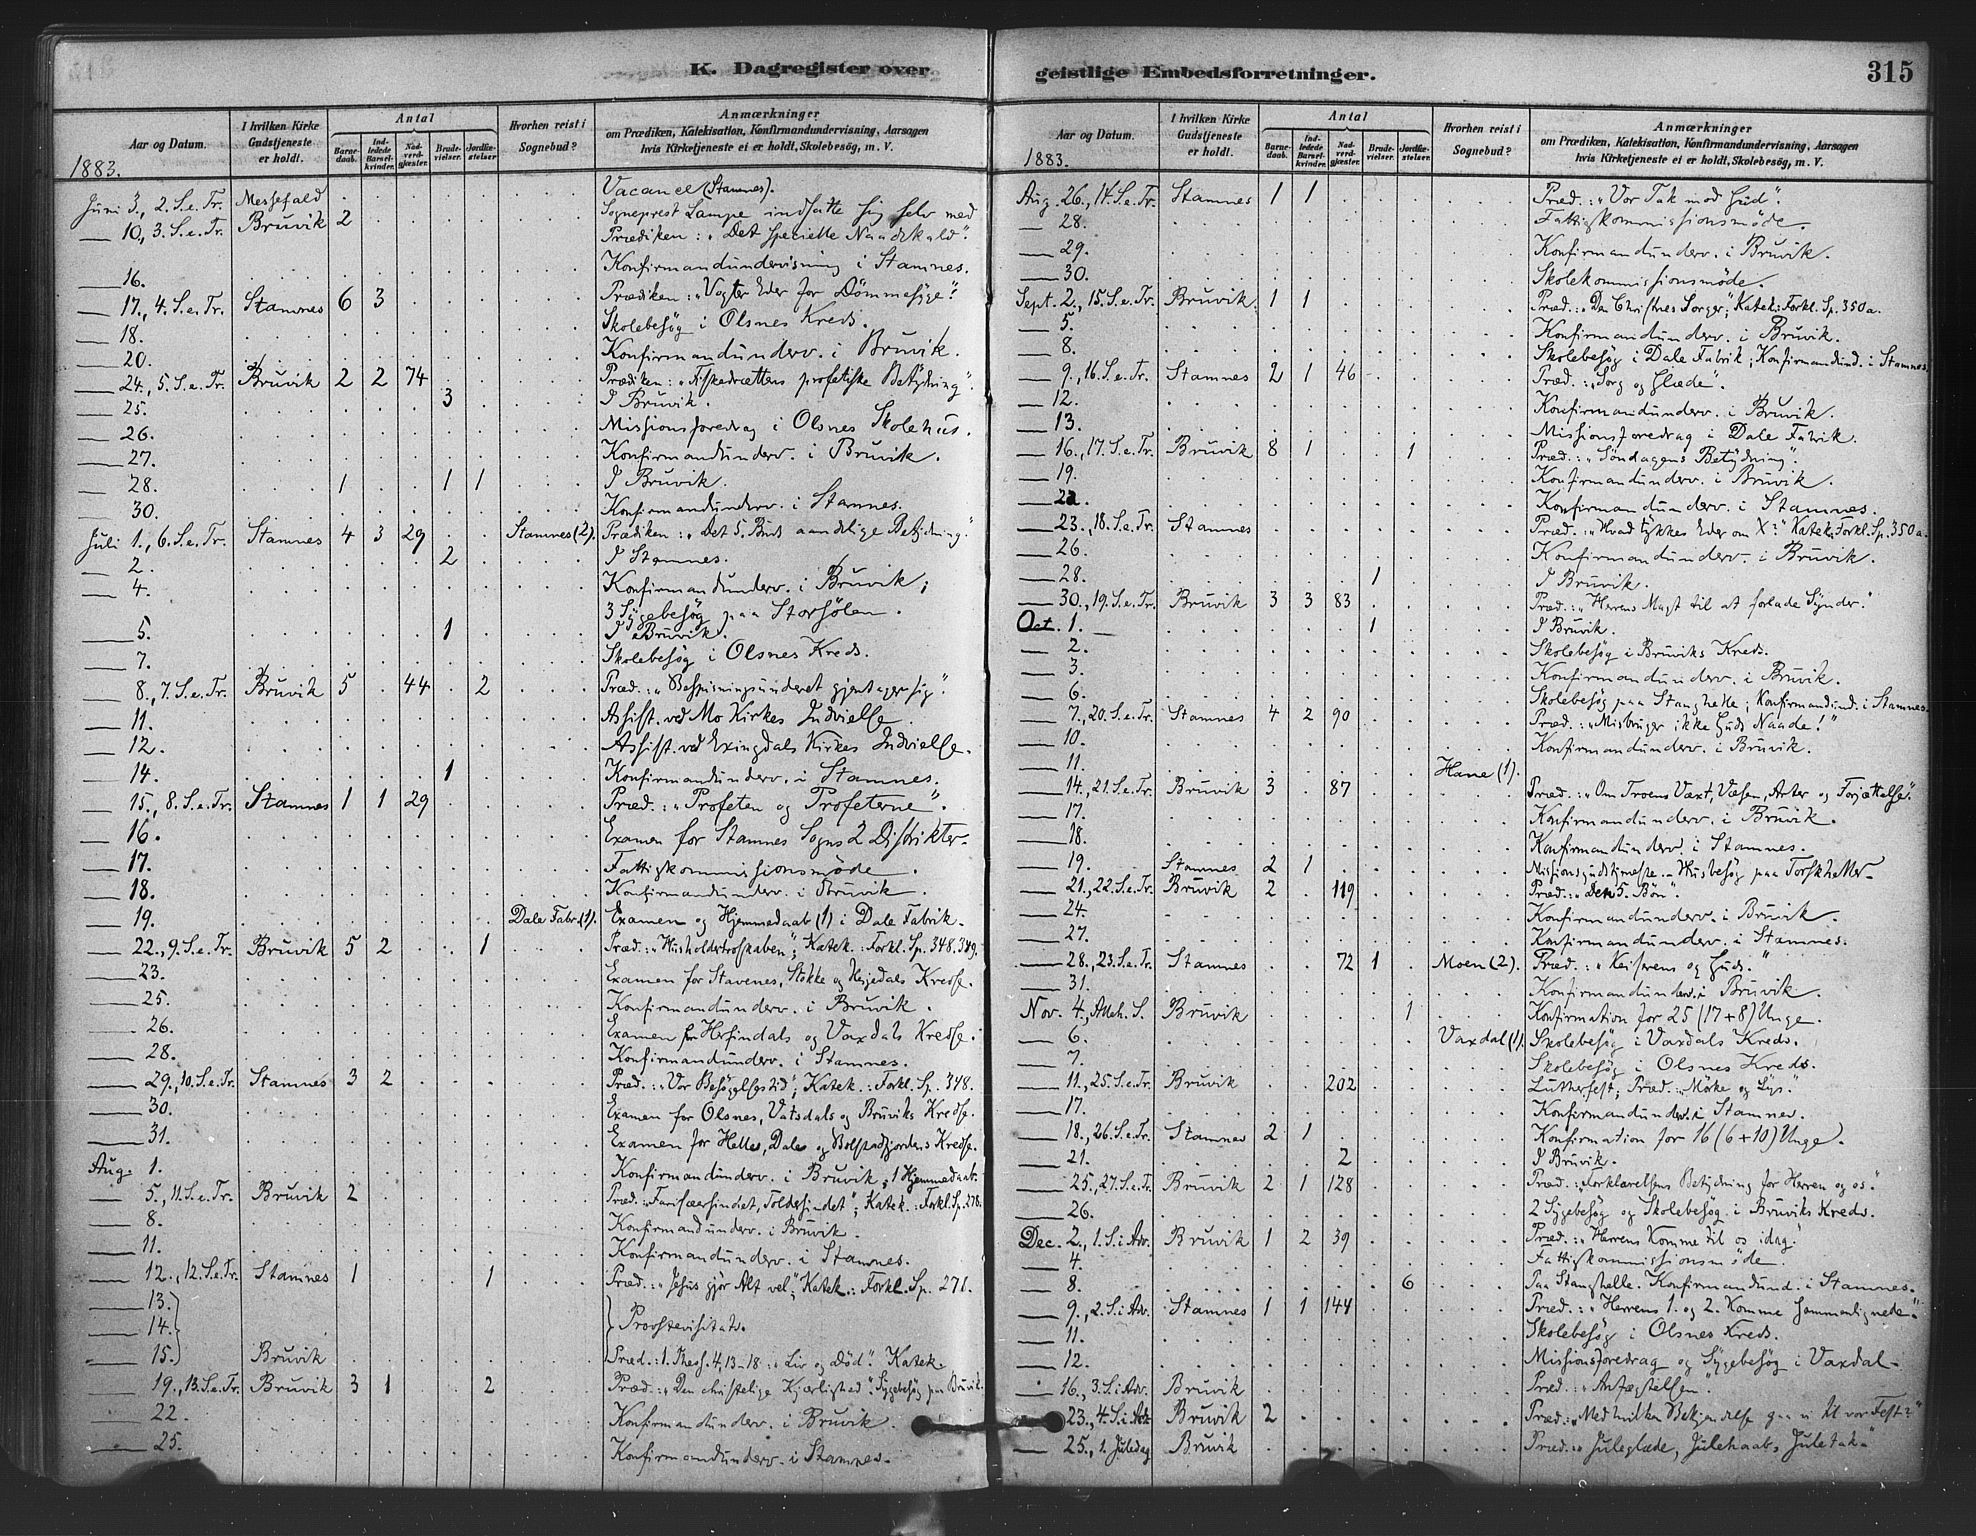 K. Dagregister over
Aar og Datum. I hvilken Kirke Gudstjeneste er holdt. Antal Barnedaab. Indledede Barselkvinder. Nadverdgjæster. Brudevielser. Jordfæstelser Hvorhen reist i Sognebud? Anmærkninger om Prædiken, Katekisation, Konfirmandundervisning, Aarsagen hvis Kirketjeneste ei er holdt, Skolebesøg, m. V.
1883.
Juni 3., 2. S. e. Tr. Messefald Vacance (Stamnes).
Sogneprest Lampe indsatte sig selv med
— 10., 3. S. e. Tr. Bruvik 2 Prædiken: „Det specielle Naadekald“.
— 16. Konfirmandundervisning i Stamnes.
— 17., 4. S. e. Tr. Stamnes 6 3 Prædiken: „Vogter Eder for Dømmesyge“.
— 18. Skolebesøg i Olsnes Kreds.
— 20. Konfirmandunderv. i Bruvik.
— 24., 5. S. e. Tr. Bruvik 2 2 74 Prædiken: „Fiskedrættens profetiske Betydning“.
— 25. 3 I Bruvik.
— 26. Missionsforedrag i Olsnes Skolehus.
— 27. Konfirmandunderv. i Bruvik.
— 28. 1 1 1 I Bruvik.
— 30. Konfirmandunderv. i Stamnes.
Juli 1., 6. S. e. Tr. Stamnes 4 3 29 Stamnes (2). Prædiken: „Det 5. Buds aandelige Betydning“
— 2. 2 I Stamnes.
— 4. Konfirmandunderv. i Bruvik;
3 Sygebesøg paa Storsølen.
— 5. 1 I Bruvik.
— 7. Skolebesøg i Olsnes Kreds.
— 8., 7. S. e. Tr. Bruvik 5 44 2 Præd.: „Bespisningsunderet gjentager sig“.
— 11. Assist. ved Mo Kirkes Indvielse.
— 12. Assist. ved Exingdals Kirkes Indvielse.
— 14. 1 Konfirmandunderv. i Stamnes.
— 15., 8. S. e. Tr. Stamnes 1 1 29 Præd.: „Profeten og Profeterne“.
— 16. Examen for Stamnes Sogns 2 Distrikter.
— 17. Fattigkommissionsmøde.
— 18. Konfirmandunderv. i Bruvik.
— 19. Dale Fabr. (1). Examen og Hjemmedaab (1) i Dale Fabrik.
— 22., 9. S. e. Tr. Bruvik 5 2 1 Præd.: „Husholdertroskaben“; Katek.: Forkl. Sp. 348. 349.
— 23. Examen for Stavenes, Stokke og Hesjedals Kredse.
— 25. Konfirmandunderv. i Bruvik.
— 26. Examen for Herfindals og Vaxdals Kredse.
— 28. Konfirmandunderv. i Stamnes.
— 29., 10. S. e. Tr. Stamnes 3 2 Præd.: „Vor Besøgelsestid“; Katek.: Forkl. Sp. 348.
— 30. Examen for Olsnes, Vatsdals og Bruviks Kredse.
— 31. Examen for Helles, Dales og Bolstadfjordens Kredse.
Aug. 1. Konfirmandunderv. i Bruvik, 1 Hjemmedaab.
— 5., 11. S. e. Tr. Bruvik 2 Præd.: „Farisæersindet, Toldersindet“; Katek.: Forkl. Sp. 278.
— 8. Konfirmandunderv. i Bruvik.
— 11. Konfirmandunderv. i Stamnes.
— 12., 12. S. e. Tr. Stamnes 1 1 Præd.: „Jesus gjør Alt vel“; Katek.: Forkl. Sp. 271.
— 13.
— 14. Provstevisitats.
— 15. Bruvik Præd.: 1. Thess. 4, 13–18: „Liv og Død“. Katek.
— 19., 13. S. e. Tr. Bruvik 3 1 2 Præd.: „Den christelige Kjærlighed“. Sygebesøg paa Bruvik.
— 22. Konfirmandunderv. i Bruvik.
— 25. Konfirmandunderv. i Stamnes.
geistlige Embedsforretninger. 315
Aar og Datum. I hvilken Kirke Gudstjeneste er holdt. Antal Barnedaab. Indledede Barselkvinder. Nadverdgjæster. Brudevielser. Jordfæstelser. Hvorhen reist i Sognebud? Anmærkninger om Prædiken, Katekisation, Konfirmandundervisning, Aarsagen hvis Kirketjeneste ei er holdt, Skolebesøg, m. V.
1883.
Aug. 26., 14. S. e. Tr. Stamnes 1 1 Præd.: „Vor Tak mod Gud“.
— 28. Fattigkommissionsmøde.
— 29. Konfirmandunderv. i Bruvik.
— 30. Skolekommissionsmøde.
Sept. 2., 15. S. e. Tr. Bruvik 1 1 Præd.: „Den Christnes Sorger“; Katek: Forkl. Sp. 350 a.
— 5. Konfirmandunderv. i Bruvik.
— 8. Skolebesøg i Dale Fabrik; Konfirmandund. i Stamnes.
— 9., 16. S. e. Tr. Stamnes 2 1 46 Præd.: „Sorg og Glæde“.
— 12. Konfirmandunderv. i Bruvik.
— 13. Missionsforedrag i Dale Fabrik.
— 16., 17. S. e. Tr. Bruvik 8 1 1 Præd.: „Søndagens Betydning“.
— 19. Konfirmandunderv. i Bruvik.
— 22. Konfirmandunderv. i Stamnes.
— 23., 18. S. e. Tr. Stamnes Præd.: „Hvad tykkes Eder om X?“ Katek: Forkl. Sp. 350 a.
— 26. Konfirmandunderv. i Bruvik.
— 28. 1 I Bruvik.
— 30., 19. S. e. Tr. Bruvik 3 3 83 Præd.: „Herrens Magt til at forlade Synder.“
Oct. 1. 1 I Bruvik.
— 2. Skolebesøg i Bruviks Kreds.
— 3. Konfirmandunderv. i Bruvik.
— 6. Skolebesøg paa Stanghelle; Konfirmandund. i Stamnes.
— 7., 20. S. e. Tr. Stamnes 4 2 90 Præd.: „Misbruger ikke Guds Naade!“
— 10. Konfirmandunderv. i Bruvik.
— 11. Hane (1).
— 14., 21. S. e. Tr. Bruvik 3 87 Præd.: „Om Troens Væxt, Væsen, Arter og Forjættelse“.
— 17. Konfirmandunderv. i Bruvik.
— 18. Konfirmandunderv. i Stamnes.
— 19. Stamnes 2 1 Missionsgudstjeneste. Husbesøg paa
— 21., 22. S. e. Tr. Bruvik 2 119 Præd.: „Den 5. Bøn“
— 24. Konfirmandunderv. i Bruvik.
— 27. Konfirmandunderv. i Stamnes.
— 28., 23. S. e. Tr. Stamnes 72 1 Moen (2). Præd.: „Keiserens og Guds.“
— 31. Konfirmandunderv. i Bruvik.
Nov. 4., Alleh. S. Bruvik 1 Konfirmation for 25 (17 + 8) Unge.
— 6. Vaxdal (1). Skolebesøg i Vaxdals Kreds.
— 7. Skolebesøg i Olsnes Kreds.
— 11., 25. S. e. Tr. Bruvik 202 Lutherfest; Præd.: „Mørke og Lys“
— 17. Konfirmandunderv. i Stamnes.
— 18., 26. S. e. Tr. Stamnes 2 1 Konfirmation for 16 (6 + 10) Unge.
— 21. 2 I Bruvik.
— 25., 27. S. e. Tr. Bruvik 2 1 128 Præd.: „Forklarelsens Betydning for Herren og os“
— 26. 2 Sygebesøg og Skolebesøg i Bruviks Kreds.
Dec. 2., 1. S. i Adv. Bruvik 1 2 39 Præd.: „Herrens Komme til os idag“
— 4. Fattigkommissionsmøde.
— 8. 6 Paa Stanghelle. Konfirmandund. i Stamnes.
— 9., 2. S. i Adv. Stamnes 1 1 144 Præd.: „Herrens 1. og 2. Komme sammenlignede“.
— 11. Skolebesøg i Olsnes Kreds.
— 12. Missionsforedrag og Sygebesøg i Vaxdal.
16., 3. S. i Adv. Bruvik Præd.: „Anfægtelsen“.
— 23., 4. S. i Adv. Bruvik 2 Præd.: „Med hvilken Bekjendelse gaa vi til vor Fest?“
— 25., 1. Juledag Bruvik Præd.: „Juleglæde, Julehaab, Juletak“